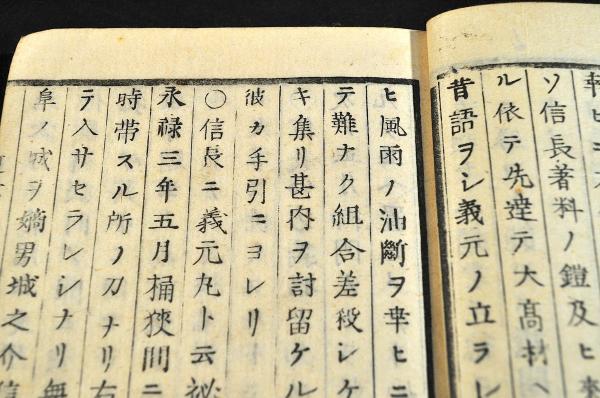 ソ信長著料ノ鎧及ヒ
ル依テ先達テ大髙村
昔語ヲシ義元ノ立ラレ
ヒ風雨ノ油斷ヲ幸ヒニ
テ難ナク組合差殺シケ
キ集リ甚内ヲ討留ケル
彼カ手引ニヨレリ
○信長ニ義元丸ト云祕
永禄三年五月桶狹間ニ
時帯スル所ノ刀ナリ右
テ入サセラレシナリ無
阜ノ城ヲ嫡男城之介信